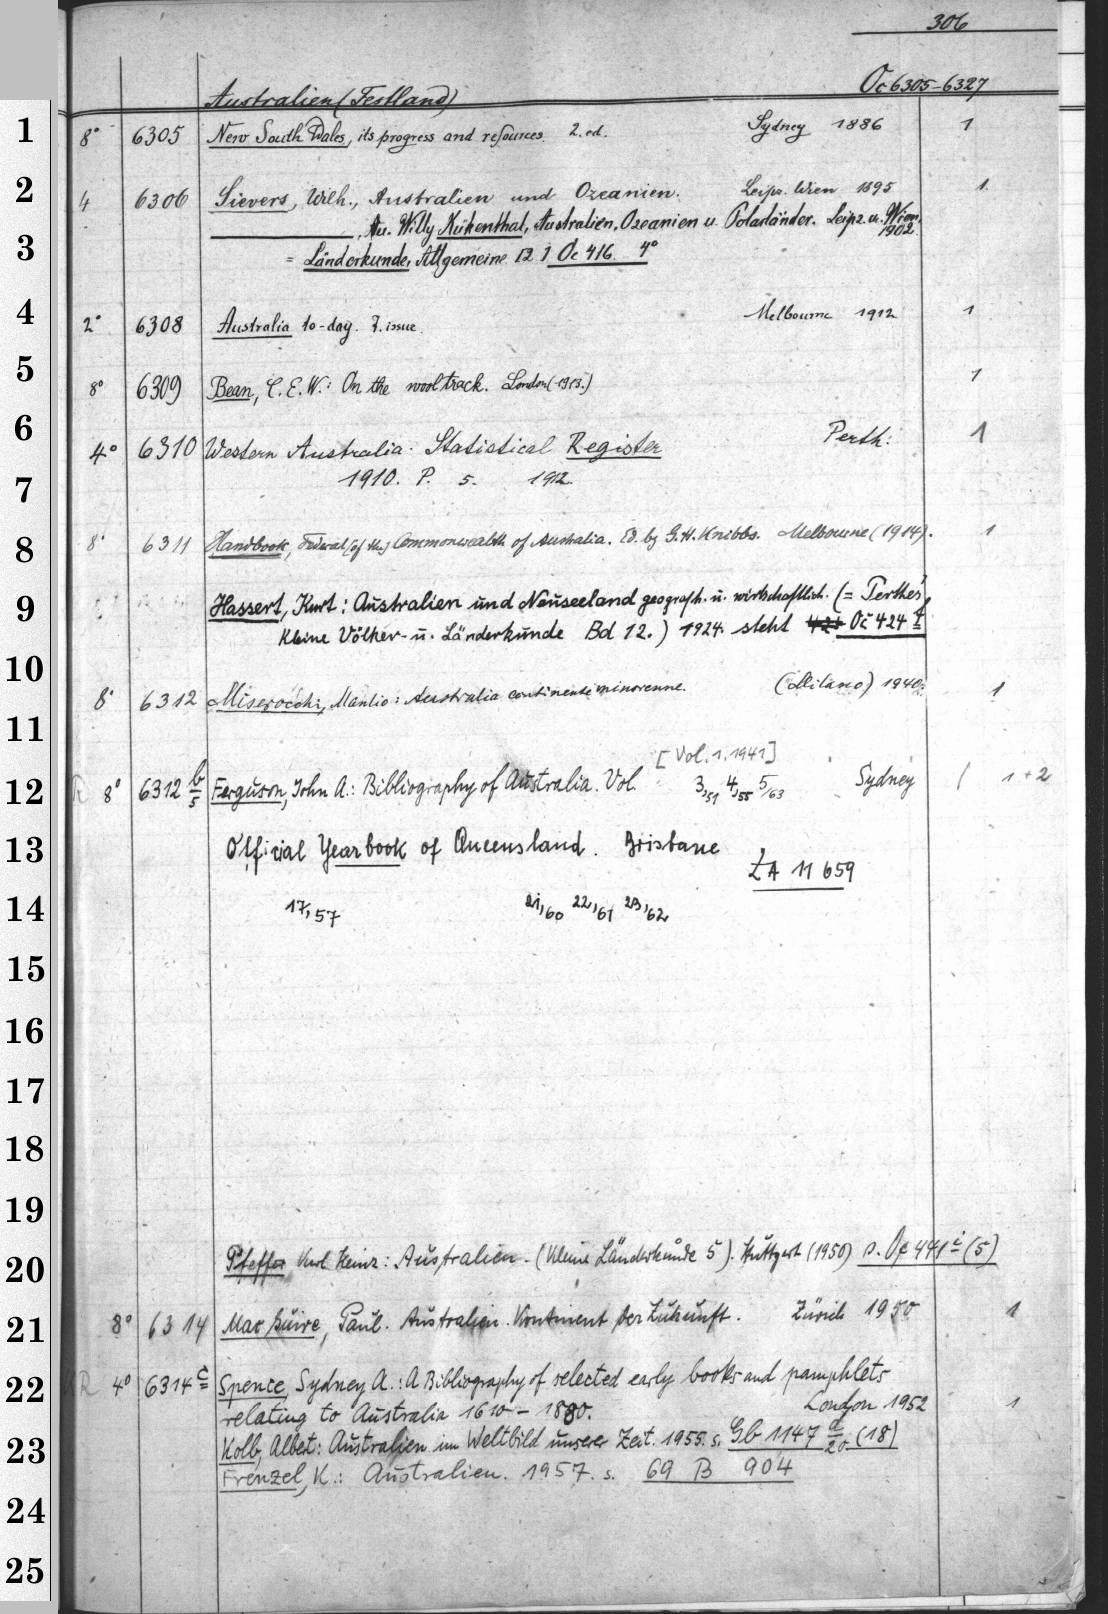 306
Australien (Festland) Oc 6305-6327
1 8° 6305 New South Wales, its progress and resources. 2. ed. Sydney 1886 1
2 4 6306 Sievers, Wilh., Australien und Ozeanien. Leipz. Wien 1895 1.
, Au. Willy Kükenthal, Australien, Ozeanien u. Polarländer. Leipz. u. Wien. 1902.
3 = Länderkunde, Allgemeine Oc 416. 4°
4 2° 6308 Australia to-day. 7. issue. Melbourne 1912 1
5 8° 6309 Bean, C. E. W.: On the wool track. London (1913.) 1
6 4° 6310 Western Australia. Statistical Register Perth: 1
7 1910. P. 5. 1912.
8 8° 6311 Handbook, Federal (of the) Commonwealth of Australia. Ed. by G. H. Knibbs. Melbourne (1914). 1
9 Hassert, Kurt: Australien und Neuseeland geograph. u. wirtschaftlich. (= Perthes'
Kleine Völker- u. Länderkunde Bd 12.) 1924. steht Oc 424 f
10
8° 6312 Miserocchi, Manlio: Australia continente minorenne. (Milano) 1940. 1
11
[Vol. 1. 1941]
12 R 8° 6312 b/5 Ferguson, John A.: Bibliography of Australia. Vol. 3,51 4,55 5/63 Sydney ( 1+2
13 Official Yearbook of Queensland. Brisbane
ZA 11 659
14 17,57 21,60 22,61 23,62
15
16
17
18
19
20 Pfeffer Karl Heinz: Australien. (Kleine Länderkunde 5). Stuttgart (1950) s. Oc 441 i (5)
21 8° 6314 Mac Guire, Paul. Australien. Kontinent der Zukunft. Zürich 1950 1
22 R 4° 6314 c Spence, Sydney A.: A Bibliography of selected early books and pamphlets
relating to Australia 1610-1880. London 1952 1
23 Kolb, Albert: Australien im Weltbild unserer Zeit. 1955. s. Gb 1147 a/20 (18)
Frenzel, K.: Australien. 1957. s. 69 B 904
24
25